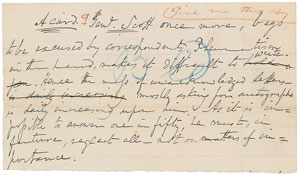 Give me this
A card. Genl. Scott once more, begs
to be excused by correspondents. Rheumatism,
in the hand, makes it difficult to hold write
pen. Hence the many unacknowledged letters
is daily increasing mostly asking for autographs
is daily increasing upon him. As it is im-
possible to answer one in fifty, he must, in
future, neglect all - not on matters of im-
portance.